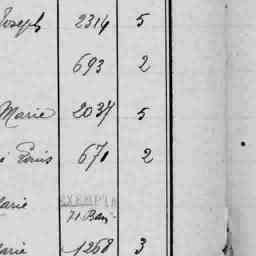 Joseph 2314 5
693 2
Marie 2037 5
671 2
Marie EXEMPT
71 Bas
Marie 1268 3